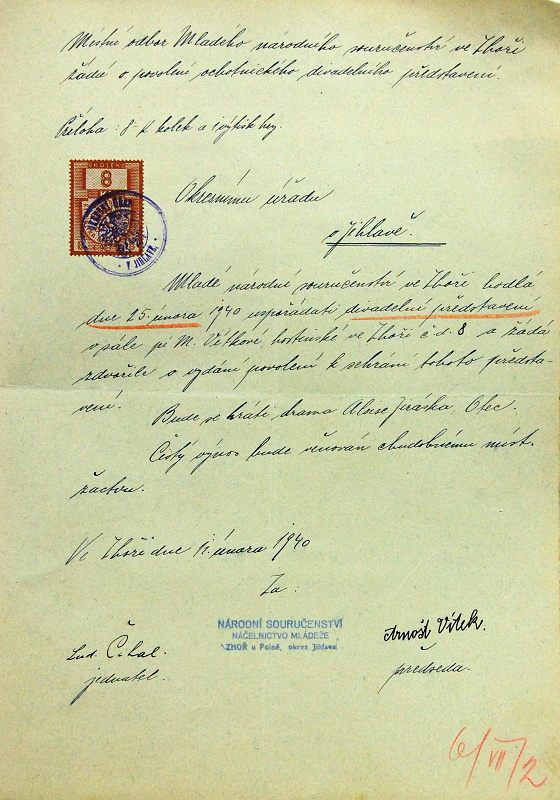 Místní odbor Mladého národního souručenství ve Zhoři
žádá o povolení ochotnického divadelního představení.
Příloha: 8 K kolek a 1 výtisk hry.
8
Okresnímu úřadu
v Jihlavě.
V JIHLAVĚ
Mladé národní souručenství ve Zhoři hodlá
dne 25. února 1940 uspořádati divadelní představení
v sále pí M. Vítkové hostinské ve Zhoři č.d. 8 a žádá
zdvořile o vydání povolení k sehrání tohoto předsta-
vení.
Bude se hráti drama Aloise Jiráska, Otec.
Čistý výnos bude věnován chudobnému míst.
žactvu.
Ve Zhoři dne 11. února 1940
Za:
NÁRODNÍ SOURUČENSTVÍ
NÁČELNICTVO MLÁDEŽE
ZHOŘ u Polné, okres Jihlava
Arnošt Vítek.
předseda.
Lud.
jednatel.
6/VII/2